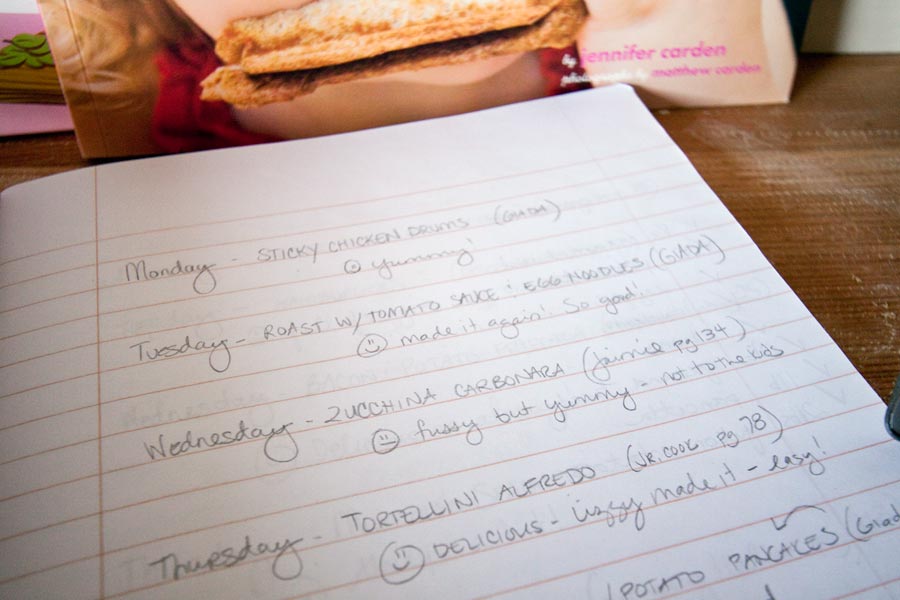 by jennifer carden
photographs by matthew carden
Monday - STICKY CHICKEN DRUMS (GIADA)
yummy!
Tuesday - ROAST W/ TOMATO SAUCE : EGG NOODLES (GIADA)
made it again! So good!
Wednesday - ZUCCHINA CARBONARA (jaimie pg 134)
fussy but yummy - not to the kids
Thursday - TORTELLINI ALFREDO (JR. COOK pg 78)
DELICIOUS - Lizzy made it - easy!
POTATO PANCAKES (Giad